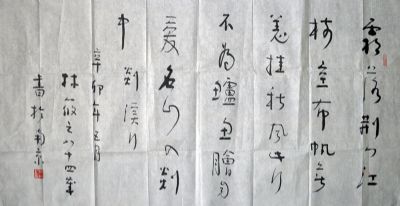 霜落荆门江
树空布帆无
恙挂秋风此行
不为鲈鱼鲙自
爱名山入剡
中 剡溪行
辛卯年五月
林筱之八十四岁
书于南京